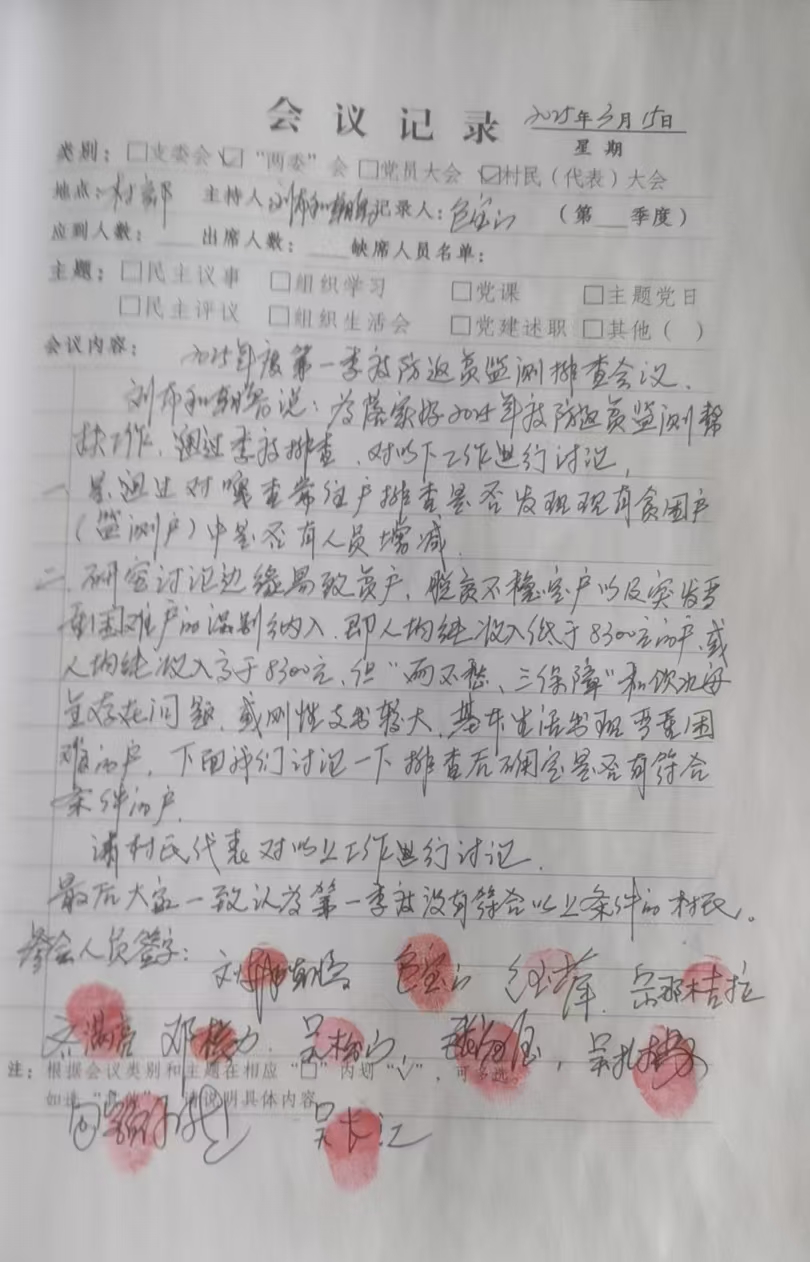 会议记录 2025年3月15日
星期
类别：□支委会 ☑“两委”会 □党员大会 ☑村民（代表）大会
地点：村部 主持人：刘布和朝鲁 记录人：包宝山 （第 季度）
应到人数： 出席人数： 缺席人员名单：
主题：□民主议事 □组织学习 □党课 □主题党日
□民主评议 □组织生活会 □党建述职 □其他（ ）
会议内容： 2025年度第一季度防返贫监测排查会议.
刘布和朝鲁说：为落实好2025年度防返贫监测帮
扶工作，通过季度排查，对以下工作进行讨论，
一、是通过对嘎查常住户排查是否发现现有贫困户
（监测户）中是否有人员增减.
二、研究讨论边缘易致贫户、脱贫不稳定户以及突发严
重困难户的识别纳入，即人均纯收入低于8300元的户，或
人均纯收入高于8300元，但“两不愁、三保障”和饮水安
全存在问题，或刚性支出较大，基本生活出现严重困
难的户，下面我们讨论一下排查后确定是否有符合
条件的户.
请村民代表对以上工作进行讨论.
最后大家一致认为第一季度没有符合以上条件的村民。
参会人员签字：
刘布和朝鲁 包宝山 萍 吴那木吉拉
齐满亮 邓 力 吴 山， ， 吴扎
注：根据会议类别和主题在相应“□”内划“√”，可多选。
如选“其他”，请说明具体内容
吴长江